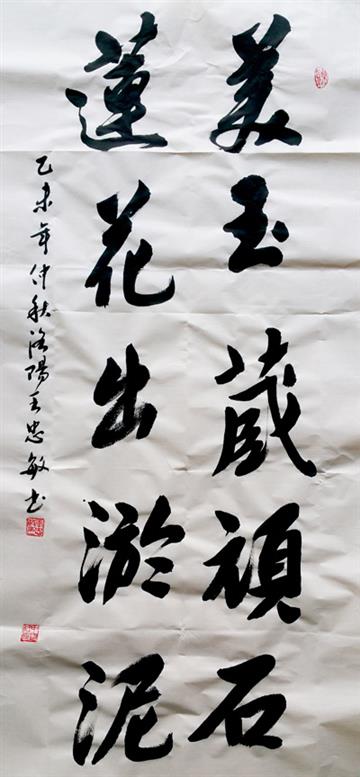 美玉藏頑石
蓮花出淤泥
乙未年仲秋洛陽王忠敏书